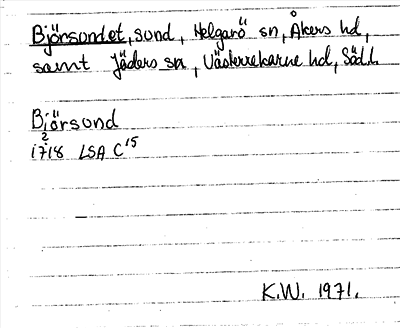 Björsundet, sund, Helgarö sn, Åkers hd,
samt Jäders sn, Västerrekarne hd, Södl.
Biörsund
1718 LSA C¹⁵
2
K.W. 1971.